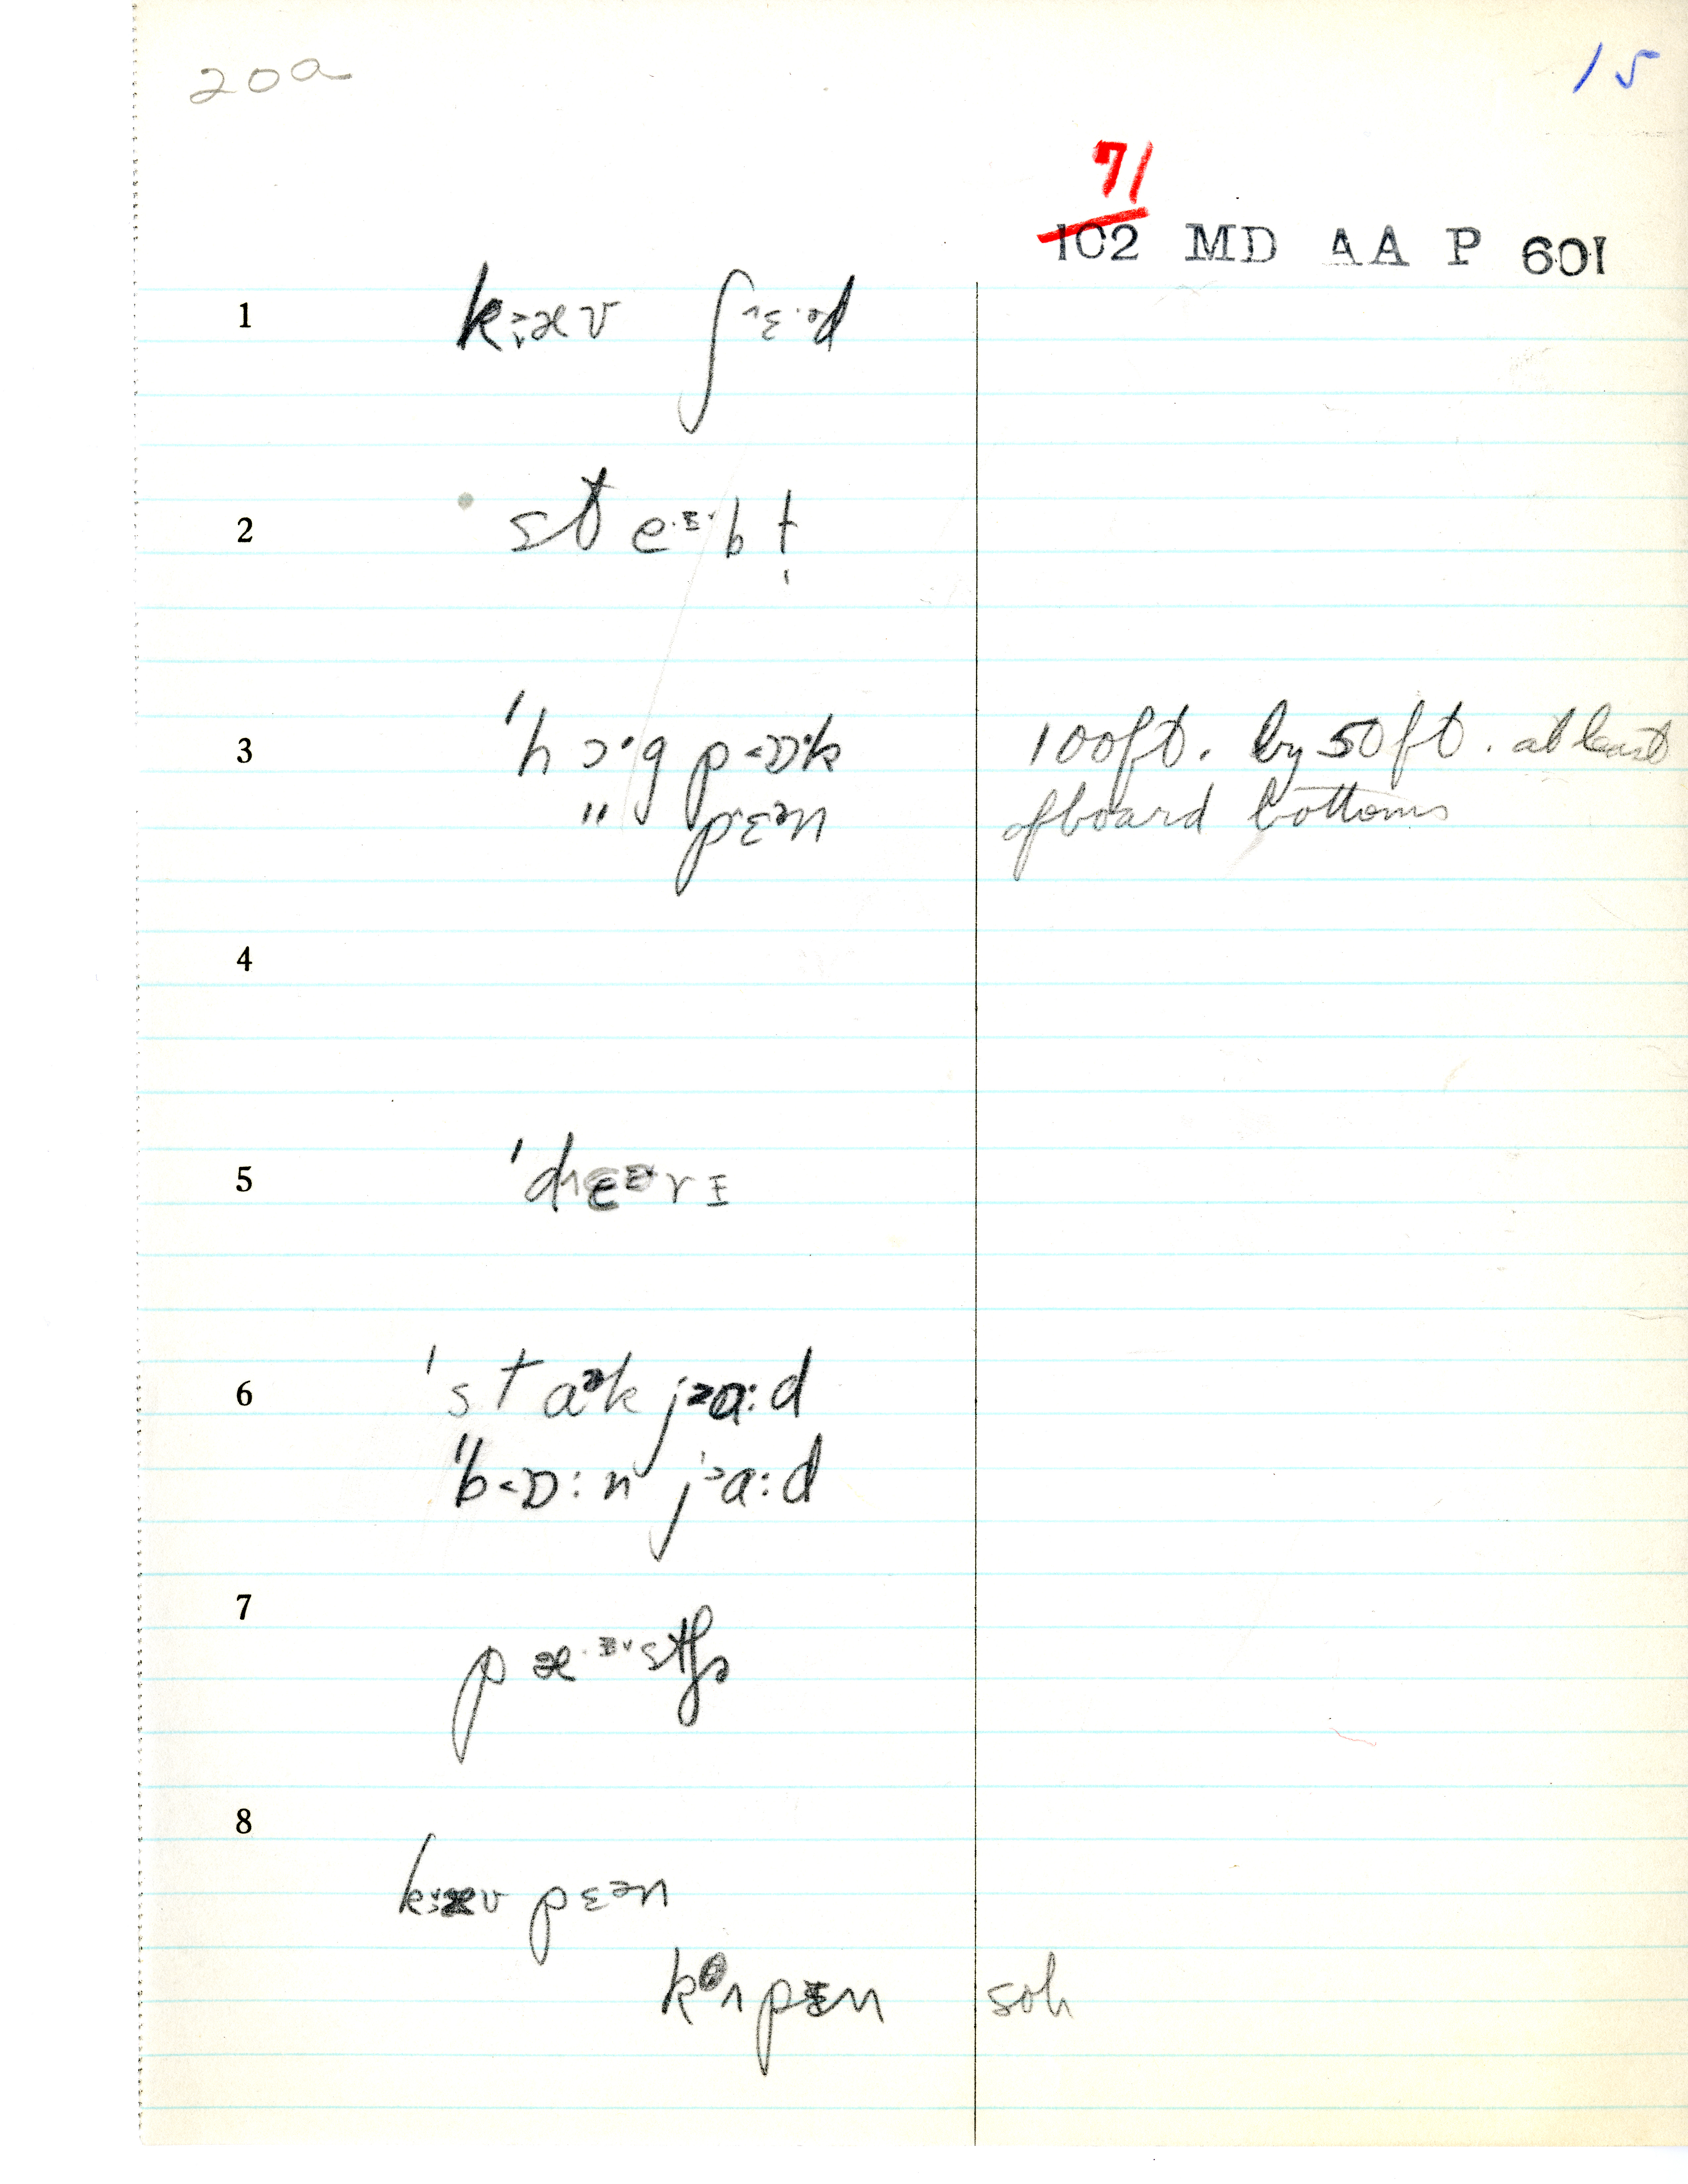 20a
15
71
102 MD AA P 601
1 k᎓æʊ ʃɛ·ᵊd
2 ste·ᵻ·bḷ
3 ˈhɔ·g pɒːk 100ft. by 50ft. at least
" pɛᵊn of board bottoms
4
5 ˈdɛɛrɪ
6 ˈstaᵊk jaːd
ˈb<ɒːn jaːd
7 pæ·ᵻstʃɚ
8 kæʊ pɛᵊn
kᶿʌpɪn soh